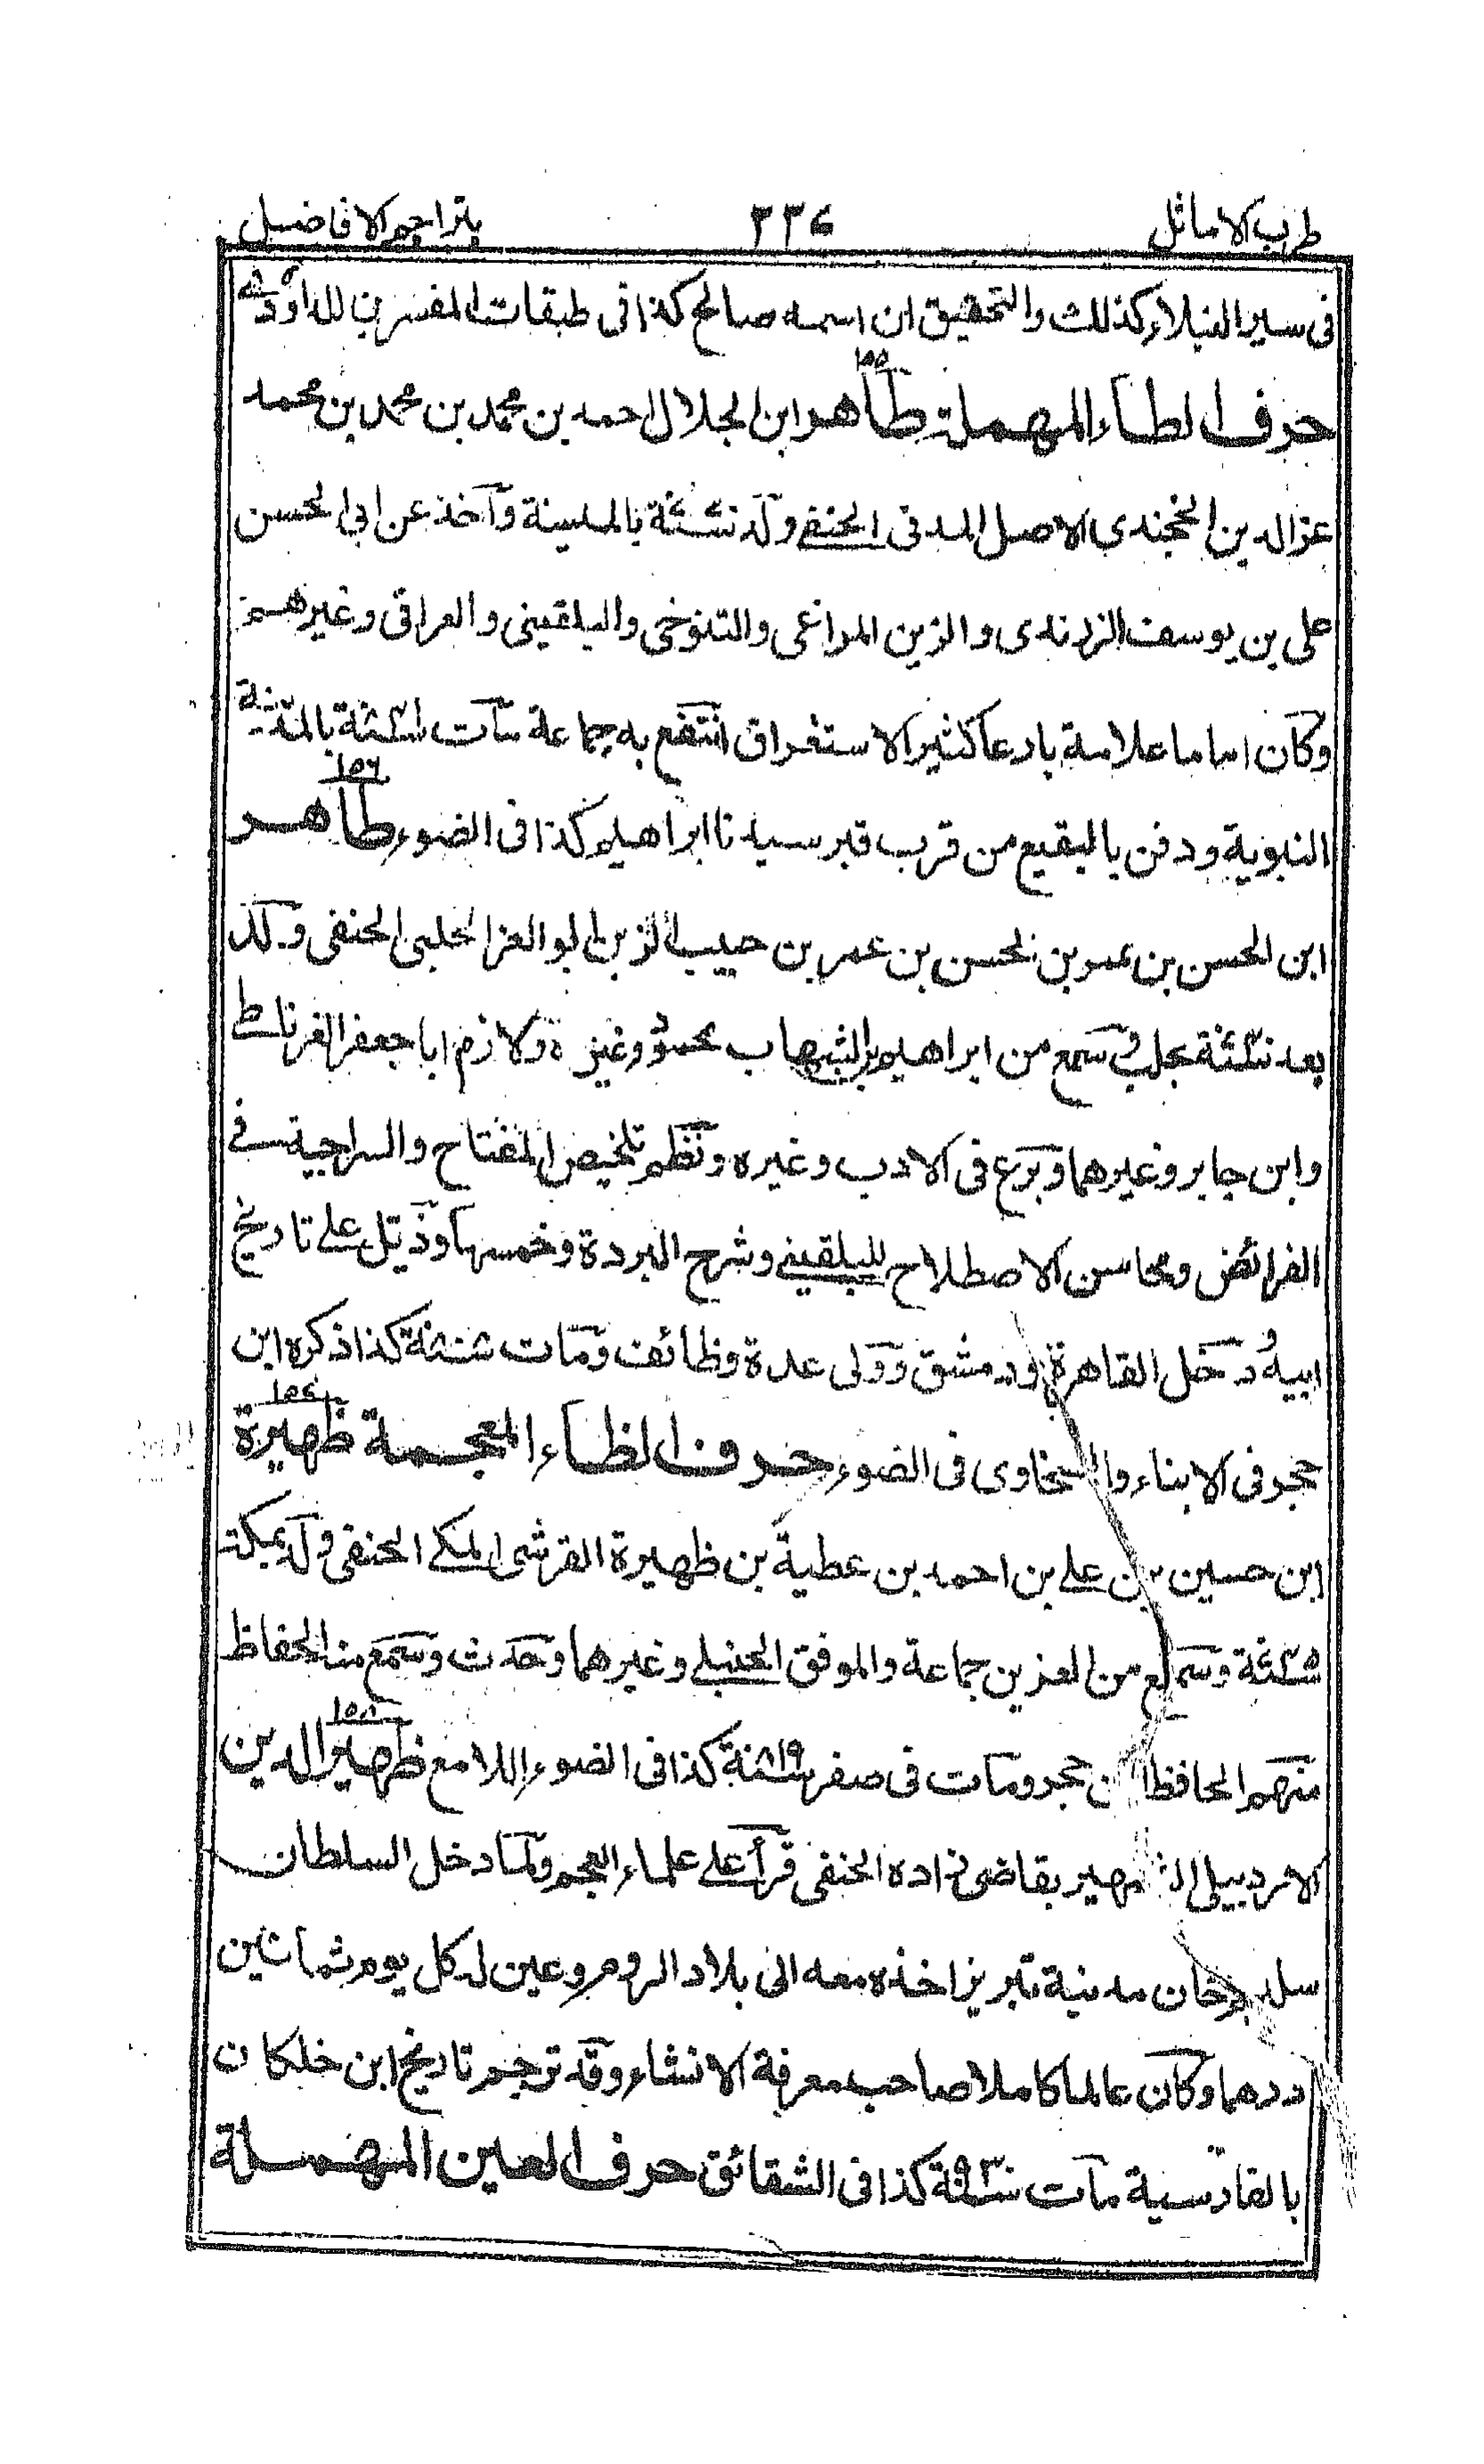 طرب الاماثل ٢٢٧ بتراجم الافاضل
فى سير النبلاء كذلك والتحقيق ان اسمه صالح كذا فى طبقات المفسرين للداؤدى
حرف الطاء المهملة ١٥٥ طاهر ابن الجلال احمد بن محمد بن محمد بن محمد
عز الدين الخجندى الاصل المدنى الحنفى ولد بالمدينة واخذ عن ابى الحسن
على بن يوسف الزرندى والزين المراغى والتنوخى والبلقينى والعراقى وغيرهم
وكان اماما علامة بارعا كثير الاستغراق انتفع به جماعة مات بالمدينة
النبوية ودفن بالبقيع من قرب قبر سيدنا ابراهيم كذا فى الضوء ١٥٦ طاهر
ابن الحسن بن عمر بن الحسن بن عمر بن حبيب الزين ابو العز الحلبى الحنفى ولد
بعد بحلب وسمع من ابراهيم بن الشهاب محمود وغيره ولازم ابا جعفر الغرناطى
وابن جابر وغيرهما وبرع فى الادب وغيره ونظم تلخيص المفتاح والسراجية فى
الفرائض ومحاسن الاصطلاح للبلقينى وشرح البردة وخمسها وذيل على تاريخ
ابيه ودخل القاهرة ودمشق وولى عدة وظائف ومات كذا ذكره ابن
حجر فى الابناء والسخاوى فى الضوء حرف الظاء المعجمة ١٥٧ ظهيرة
ابن حسين بن على بن احمد بن عطية بن ظهيرة القرشى المكى الحنفى ولد بمكة
وسمع من العز بن جماعة والموفق الحنبلى وغيرهما وحدث وسمع منه الحفاظ
منهم الحافظ ابن حجر ومات فى صفر سنة ٨١٩ كذا فى الضوء اللامع ١٥٨ ظهير الدين
الاردبيلى الشهير بقاضى زاده الحنفى قرأ على علماء العجم ولما دخل السلطان
سليم خان مدينة تبريز اخذه معه الى بلاد الروم وعين له كل يوم ثمانين
درهما وكان عالما كاملا صاحب معرفة الانشاء وقد ترجم تاريخ ابن خلكان
بالفارسية مات سنة ٩٣٠ كذا فى الشقائق حرف العين المهملة